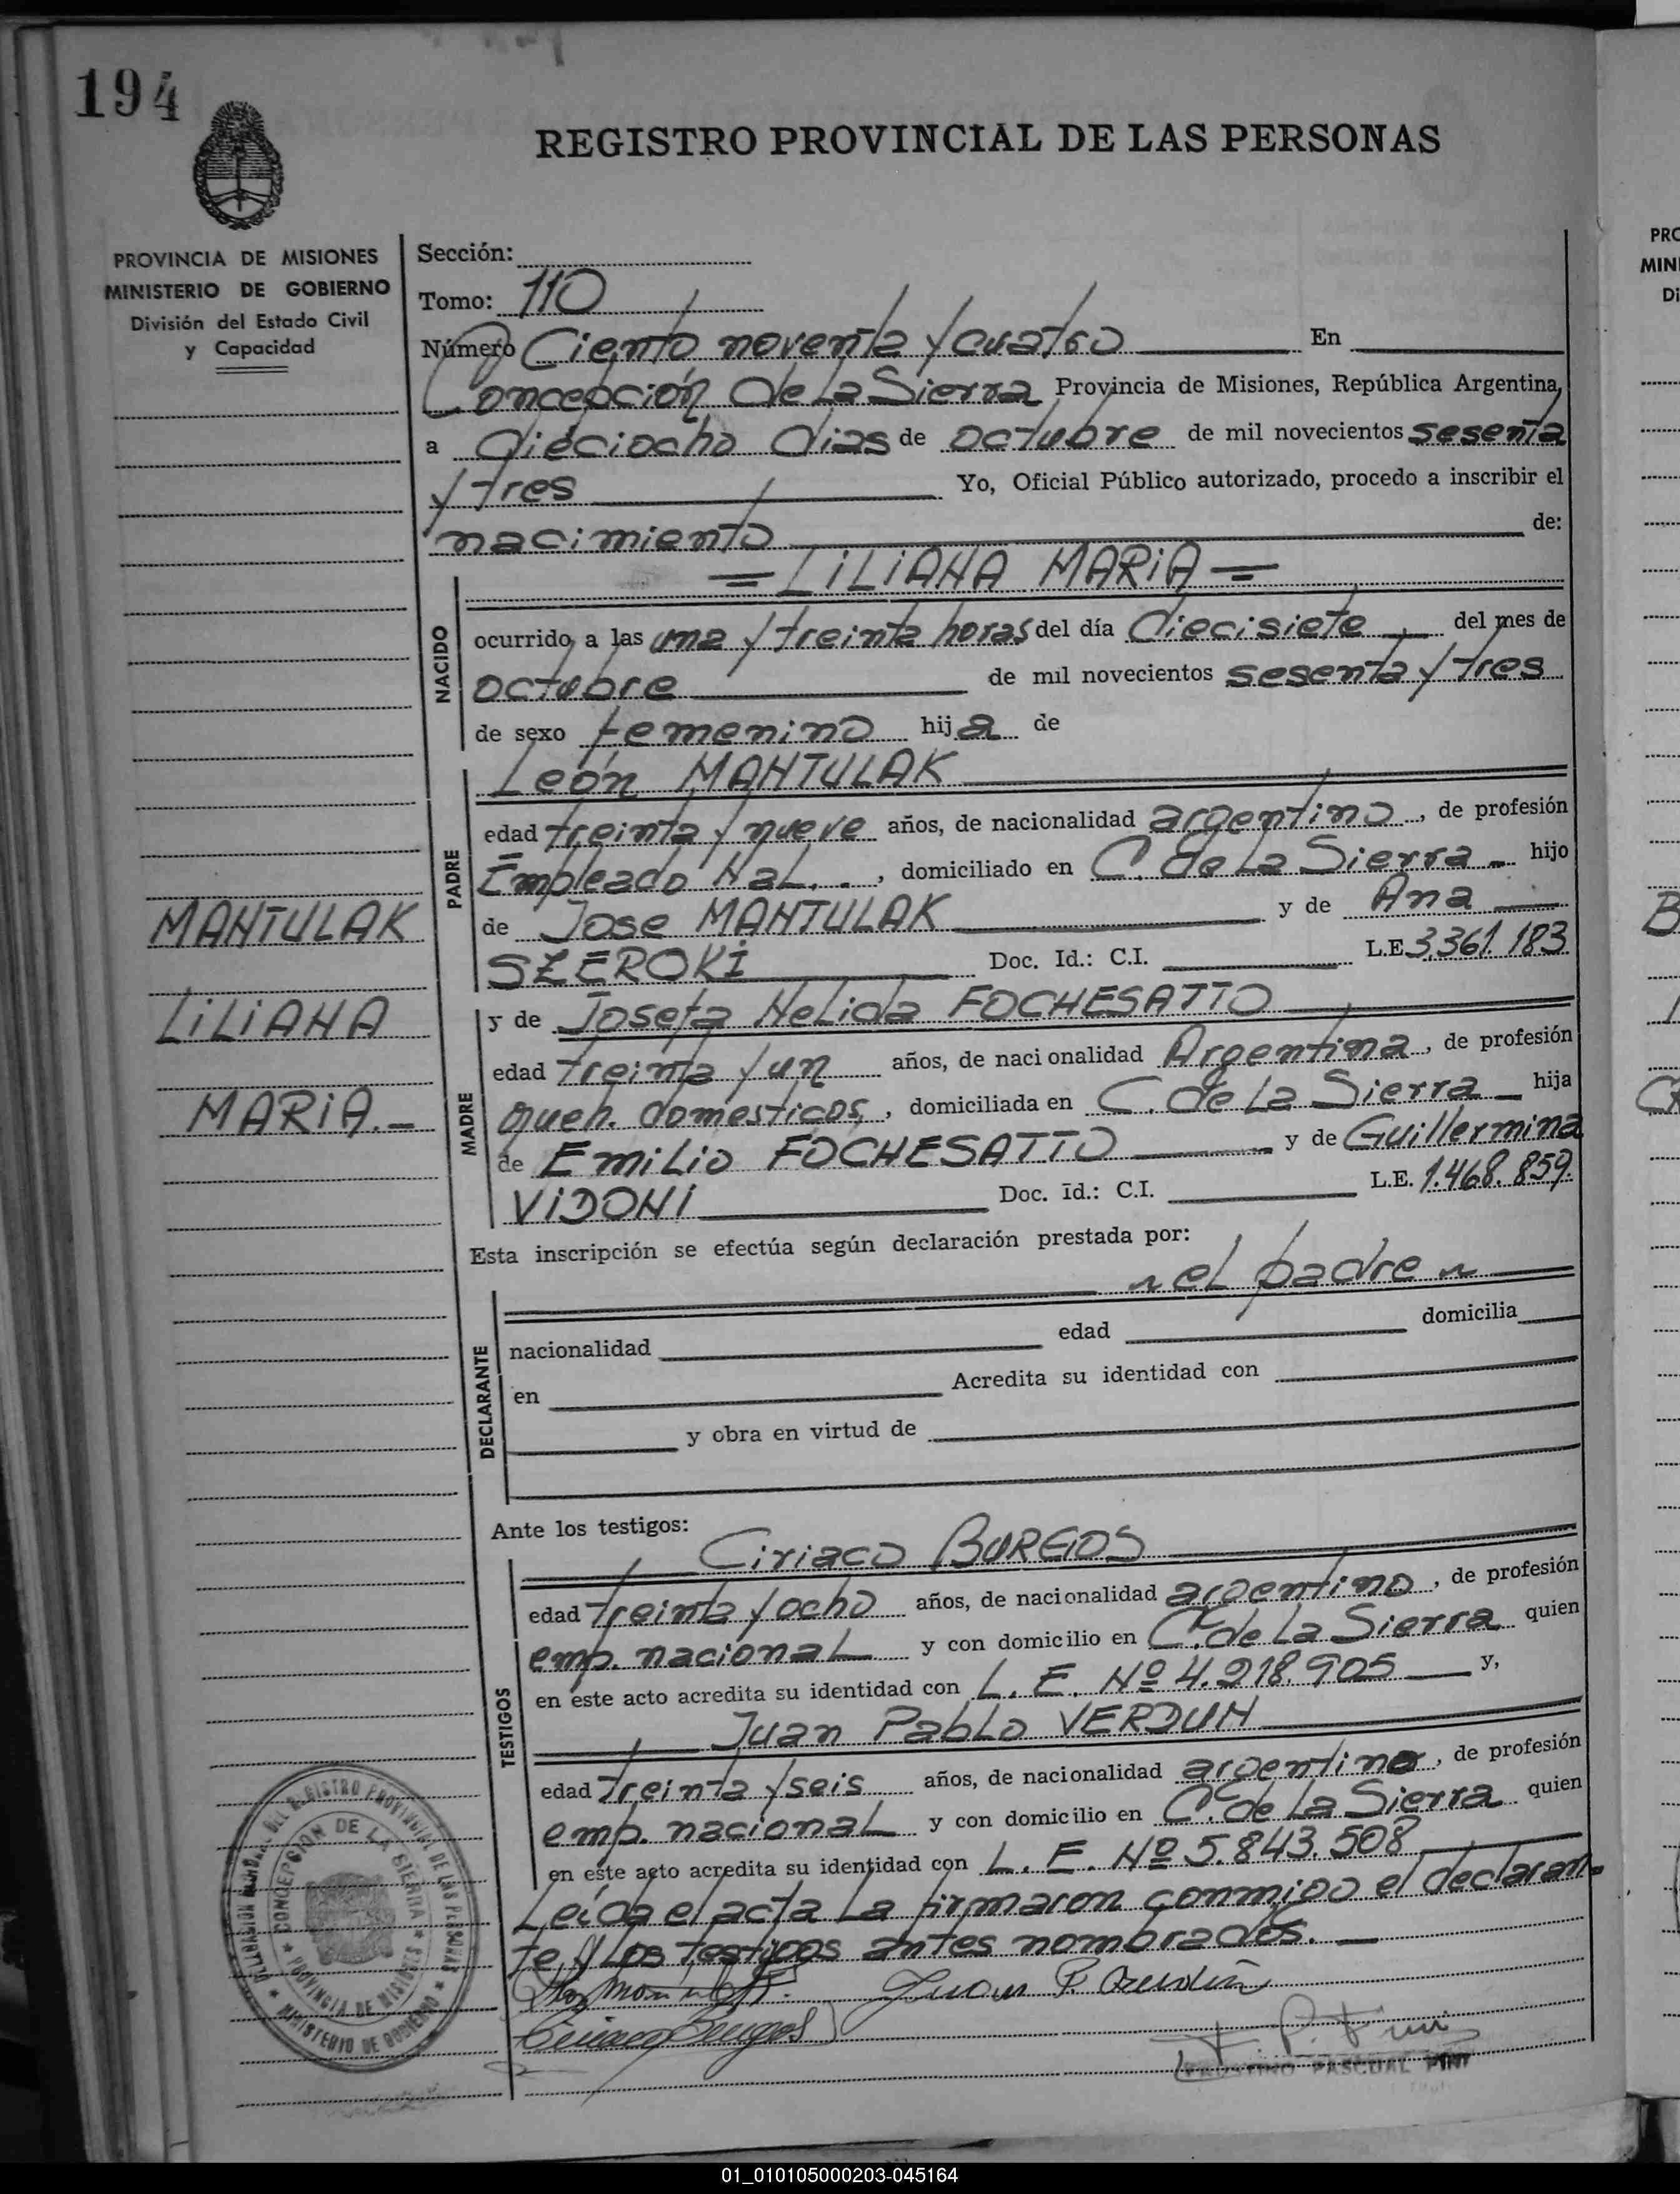 194
REGISTRO PROVINCIAL DE LAS PERSONAS
PROVINCIA DE MISIONES
MINISTERIO DE GOBIERNO
División del Estado Civil
y Capacidad
MANTULAK
LILIANA
MARIA.-
Sección:
Tomo: 110
Número Ciento noventa y cuatro En
Concepción de la Sierra Provincia de Misiones, República Argentina,
a dieciocho dias de octubre de mil novecientos sesenta
y tres Yo, Oficial Público autorizado, procedo a inscribir el
nacimiento de:
= LILIANA MARIA =
NACIDO
ocurrido a las una y treinta horas del día diecisiete del mes de
octubre de mil novecientos sesenta y tres
de sexo femenino hija de
PADRE
León MANTULAK
edad treinta y nueve años, de nacionalidad argentino, de profesión
Empleado Nal. ., domiciliado en C. de la Sierra - hijo
de Jose MANTULAK y de Ana
SZEROKI Doc. Id.: C.I. L.E. 3.361.183
MADRE
y de Josefa Nelida FOCHESATTO
edad treinta y un años, de nacionalidad Argentina, de profesión
queh. domesticos, domiciliada en C. de la Sierra - hija
de Emilio FOCHESATTO y de Guillermina
VIDONI Doc. Id.: C.I. L.E. 1.468.859.
Esta inscripción se efectúa según declaración prestada por:
~ el padre ~
DECLARANTE
nacionalidad edad domicilia
en Acredita su identidad con
y obra en virtud de
Ante los testigos:
Ciriaco BURGOS
TESTIGOS
edad treinta y ocho años, de nacionalidad argentino, de profesión
emp. nacional y con domicilio en C. de la Sierra quien
en este acto acredita su identidad con L. E. Nº 4.218.905 y,
Juan Pablo VERDUN
edad treinta y seis años, de nacionalidad argentino, de profesión
emp. nacional y con domicilio en C. de la Sierra quien
en este acto acredita su identidad con L. E. Nº 5.843.508
Leída el acta la firmaron conmigo el declaran-
te y los testigos antes nombrados. -
Juan P. Verdún
Ciriaco Burgos
FAUSTINO PASCUAL
DEL REGISTRO PROVINCIAL DE LAS PERSONAS
CONCEPCION DE LA SIERRA
PROVINCIA DE MISIONES
MINISTERIO DE GOBIERNO
PRO
MINI
Di
01_010105000203-045164